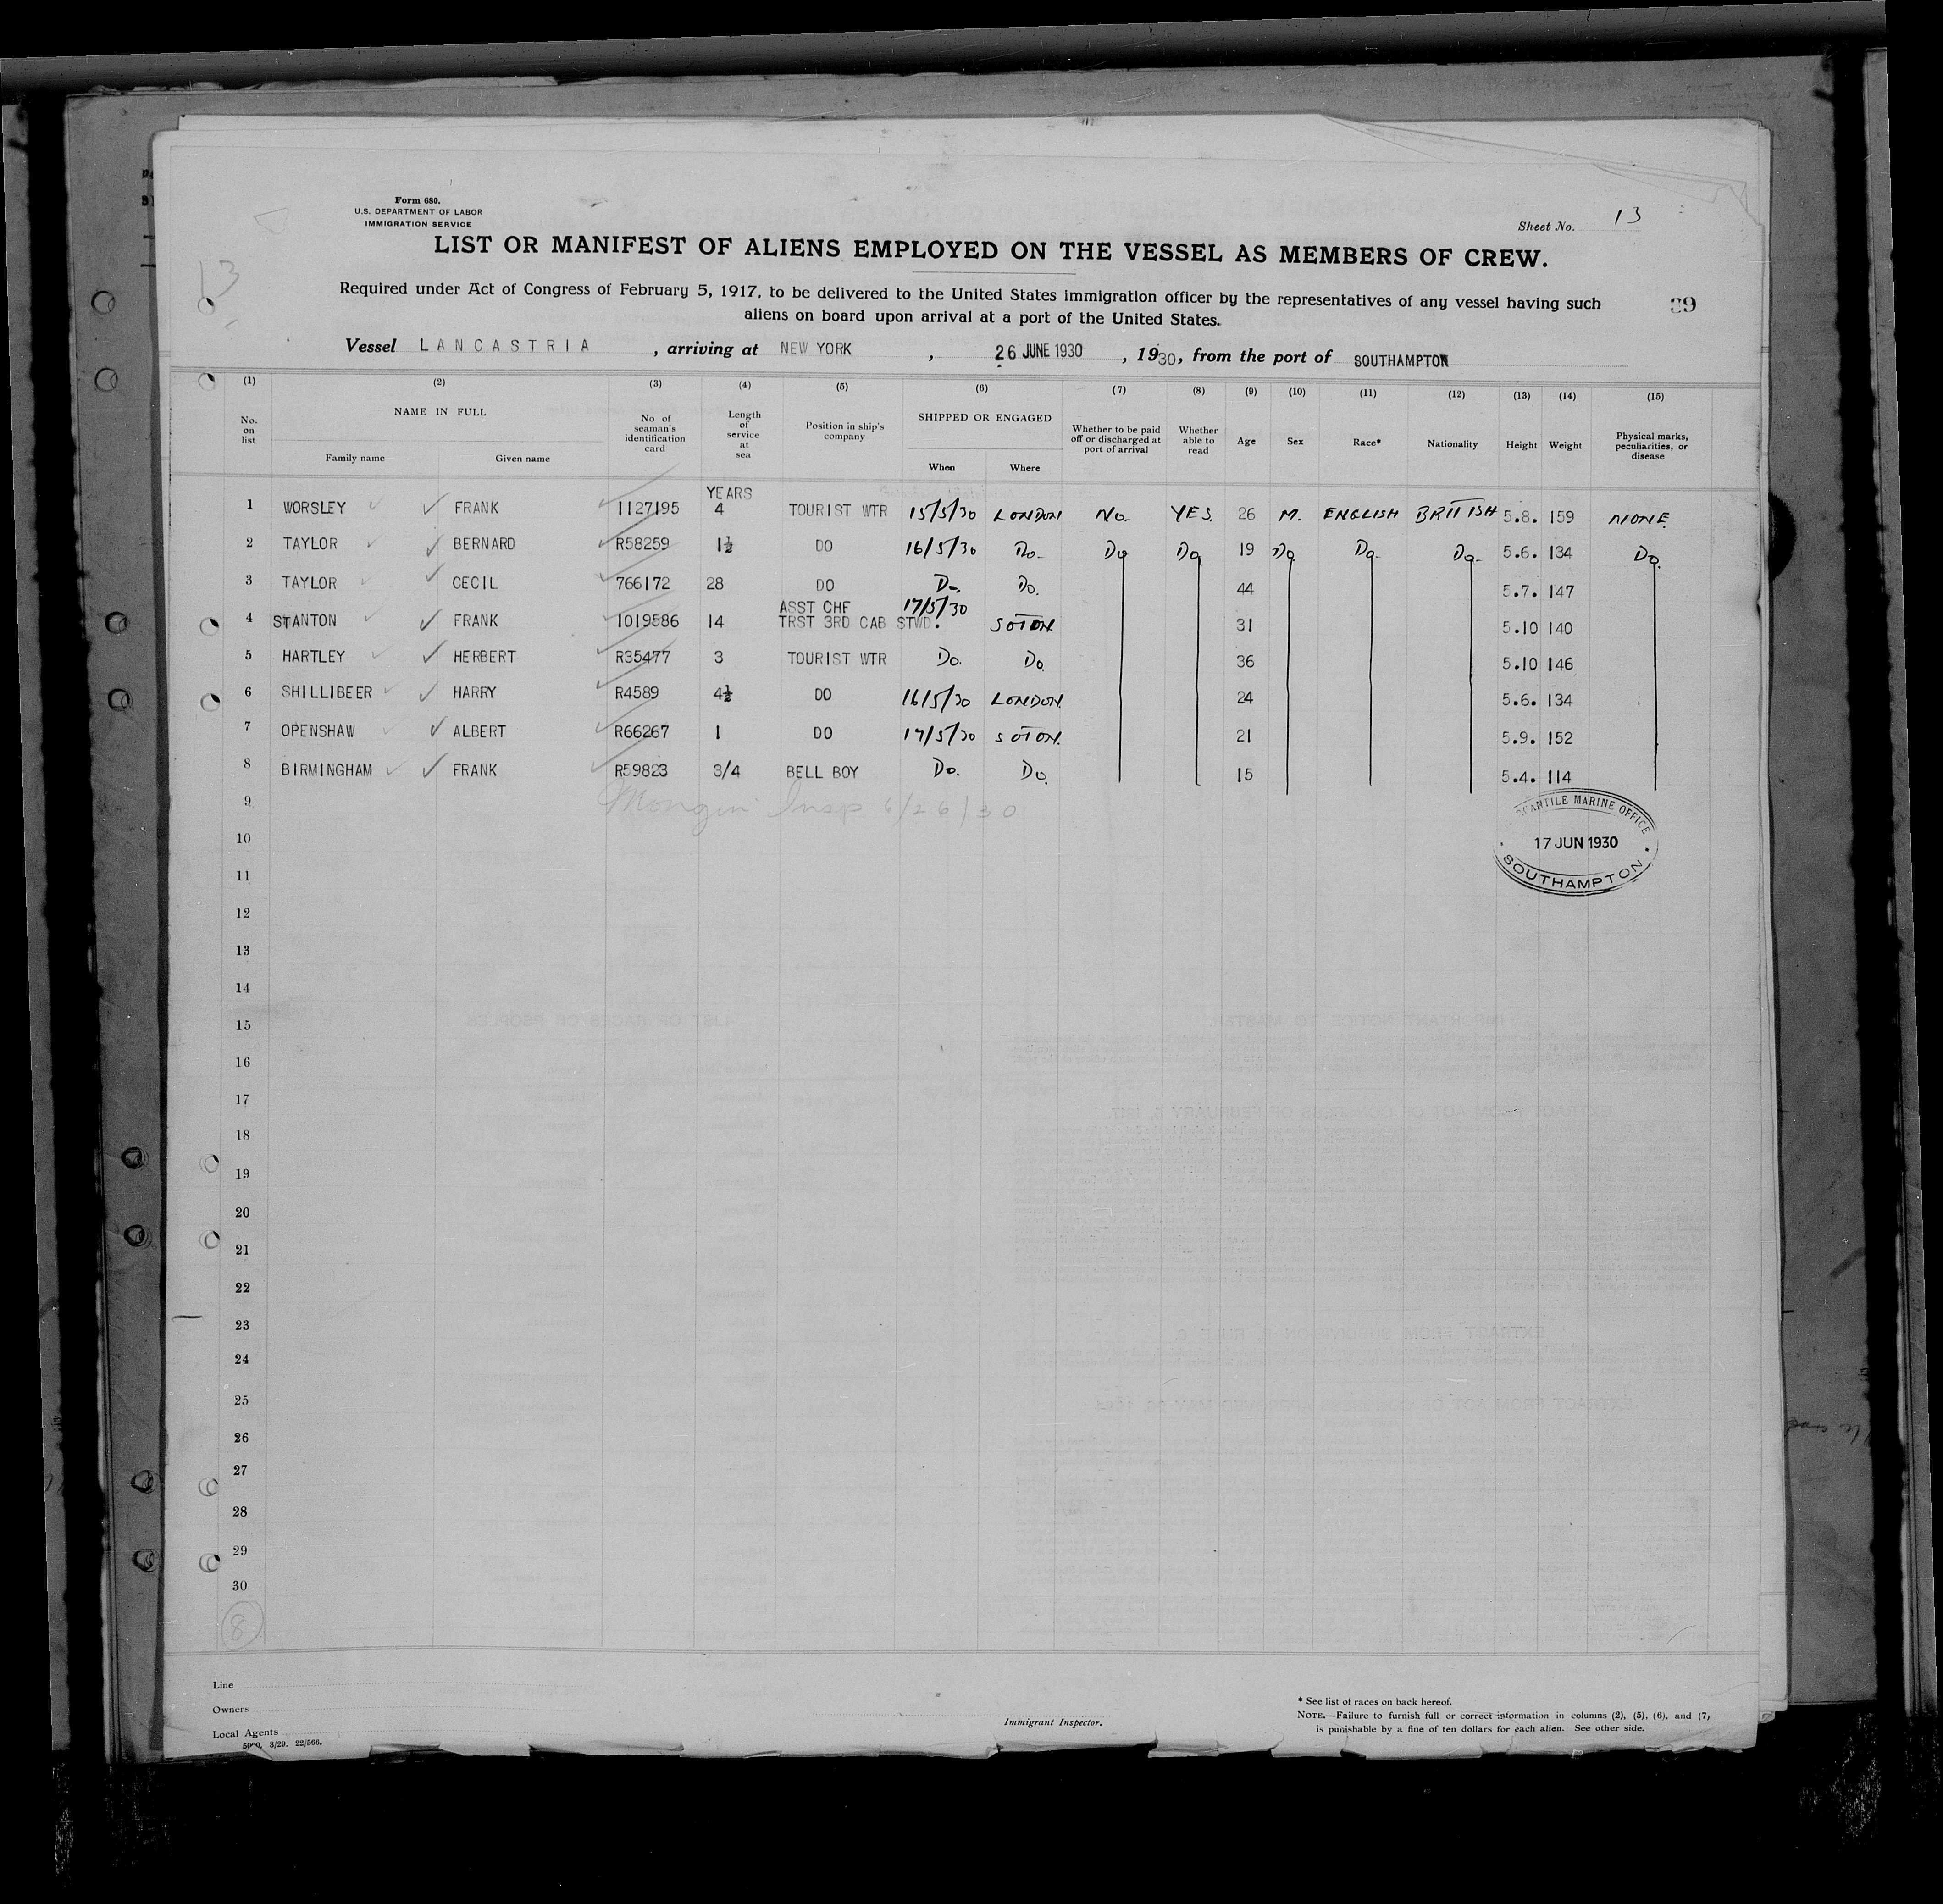 Form 680.
U.S. DEPARTMENT OF LABOR
IMMIGRATION SERVICE
Sheet No. 13
LIST OR MANIFEST OF ALIENS EMPLOYED ON THE VESSEL AS MEMBERS OF CREW.
13
Required under Act of Congress of February 5, 1917, to be delivered to the United States immigration officer by the representatives of any vessel having such
aliens on board upon arrival at a port of the United States.
39
Vessel LANCASTRIA , arriving at NEW YORK , 26 JUNE 1930 , 1930, from the port of SOUTHAMPTON
(1) (2) (3) (4) (5) (6) (7) (8) (9) (10) (11) (12) (13) (14) (15)
No. on list NAME IN FULL Family name Given name No. of seaman's identification card Length of service at sea Position in ship's company SHIPPED OR ENGAGED When Where Whether to be paid off or discharged at port of arrival Whether able to read Age Sex Race* Nationality Height Weight Physical marks, peculiarities, or disease
YEARS
1 WORSLEY FRANK 1127195 4 TOURIST WTR 15/5/30 LONDON No. YES. 26 M. ENGLISH BRITISH 5.8. 159 NONE
2 TAYLOR BERNARD R58259 1½ DO 16/5/30 Do. Do Do 19 Do Do. Do. 5.6. 134 Do.
3 TAYLOR CECIL 766172 28 DO Do. Do. 44 5.7. 147
4 STANTON FRANK 1019586 14 ASST CHF TRST 3RD CAB STWD. 17/5/30 SOTON. 31 5.10 140
5 HARTLEY HERBERT R35477 3 TOURIST WTR Do. Do. 36 5.10 146
6 SHILLIBEER HARRY R4589 4½ DO 16/5/30 LONDON. 24 5.6. 134
7 OPENSHAW ALBERT R66267 1 DO 17/5/30 SOTON. 21 5.9. 152
8 BIRMINGHAM FRANK R59823 3/4 BELL BOY Do. Do. 15 5.4. 114
9 Mongin Insp 6/26/30
MERCANTILE MARINE OFFICE
17 JUN 1930
SOUTHAMPTON
10
11
12
13
14
15
16
17
18
19
20
21
22
23
24
25
26
27
28
29
30
8
Line
Owners
Local Agents
5000. 3/29. 22/566.
Immigrant Inspector.
* See list of races on back hereof.
NOTE.—Failure to furnish full or correct information in columns (2), (5), (6), and (7)
is punishable by a fine of ten dollars for each alien. See other side.